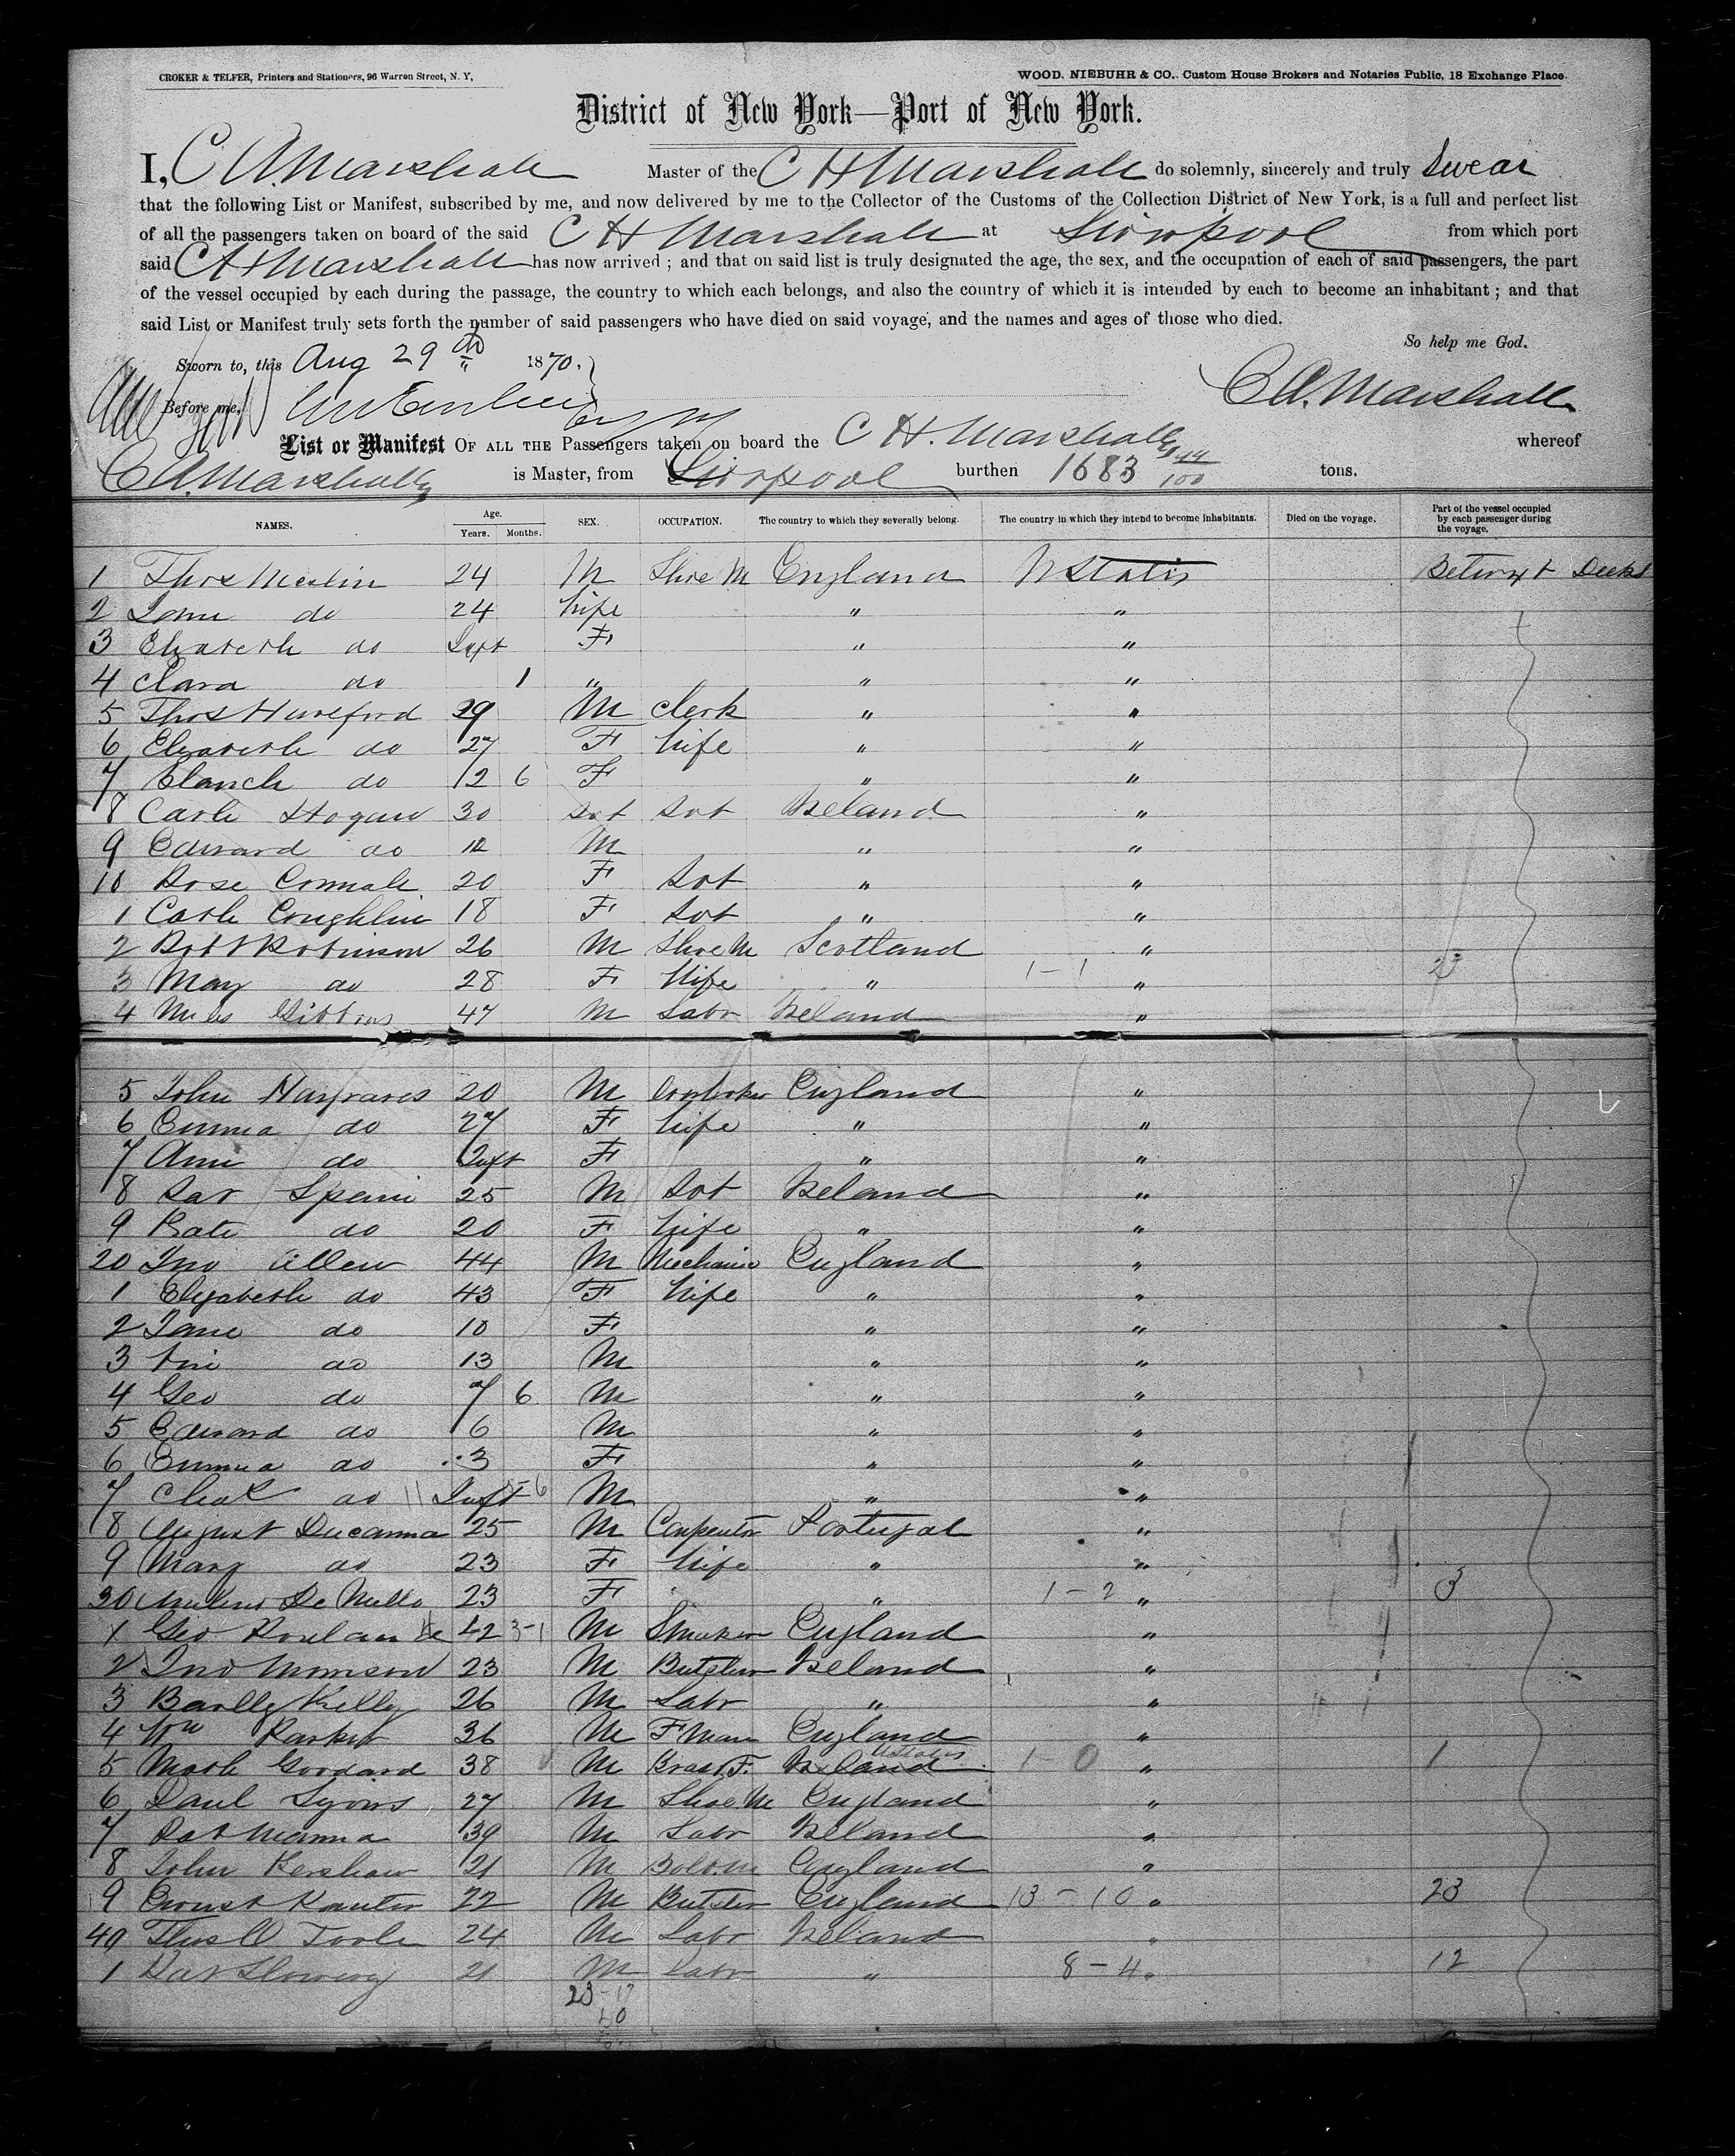 CROKER & TELFER, Printers and Stationers, 96 Warren Street, N. Y.
WOOD. NIEBUHR & CO., Custom House Brokers and Notaries Public, 18 Exchange Place.
District of New York—Port of New York.
I, C A. Marshall Master of the C H Marshall do solemnly, sincerely and truly Swear
that the following List or Manifest, subscribed by me, and now delivered by me to the Collector of the Customs of the Collection District of New York, is a full and perfect list
of all the passengers taken on board of the said C H Marshall at Liverpool from which port
said C H Marshall has now arrived ; and that on said list is truly designated the age, the sex, and the occupation of each of said passengers, the part
of the vessel occupied by each during the passage, the country to which each belongs, and also the country of which it is intended by each to become an inhabitant ; and that
said List or Manifest truly sets forth the number of said passengers who have died on said voyage, and the names and ages of those who died.
So help me God.
Sworn to, this Aug 29th 1870.
C A. Marshall
Before me,
List or Manifest OF ALL THE Passengers taken on board the C H. Marshall whereof
C A. Marshall is Master, from Liverpool burthen 1683 44/100 tons.
NAMES. Age. Years. Months. SEX. OCCUPATION. The country to which they severally belong. The country in which they intend to become inhabitants. Died on the voyage. Part of the vessel occupied by each passenger during the voyage.
1 Thos 24 M Shoe M England U States Betwixt Decks
2 Jane do 24 Wife " "
3 Elizabeth do Inft F " "
4 Clara do 1 " " "
5 Thos Hureford 29 M Clerk " "
6 Elizabeth do 27 F Wife " "
7 Blanch do 12 6 F " "
8 Cath Hogan 30 Ireland "
9 Edward do 12 M " "
10 Rose 20 F " "
1 Cath Coughlin 18 F " "
2 Robt Robinson 26 M Shoe M Scotland "
3 Mary do 28 F Wife " 1-1 " 2
4 Miles Gibbons 47 M Labr Ireland "
5 John Hargraves 20 M England "
6 Emma do 27 F Wife " "
7 Ann do Inft F " "
8 Pat 25 M Ireland "
9 Kate do 20 F Wife " "
20 Jno Allen 44 M Mechanic England "
1 Elizabeth do 43 F Wife " "
2 Jane do 10 F " "
3 do 13 M " "
4 Geo do 7 6 M " "
5 Edward do 6 M " "
6 Emma do 3 F " "
7 Chas do 11 Inft 6 M " "
8 August Ducanna 25 M Carpenter Portugal "
9 Mary do 23 F Wife " "
30 De Mello 23 F " 1-2 " 3
1 Geo 42 3-1 M England "
2 Jno Morrison 23 M Butcher Ireland "
3 Kelly 26 M Labr " "
4 Wm 36 M F Man England "
5 Goddard 38 M Brass F. Ireland U States 1-0 " 1
6 Danl Lyons 27 M Shoe M England "
7 Pat 39 M Labr Ireland "
8 John Kershaw 21 M England "
9 Ernest 22 M Butcher England 13-10 " 23
40 Thos O Toole 24 M Labr Ireland "
1 Pat 21 M Labr " 8-4 " 12
23-17
40